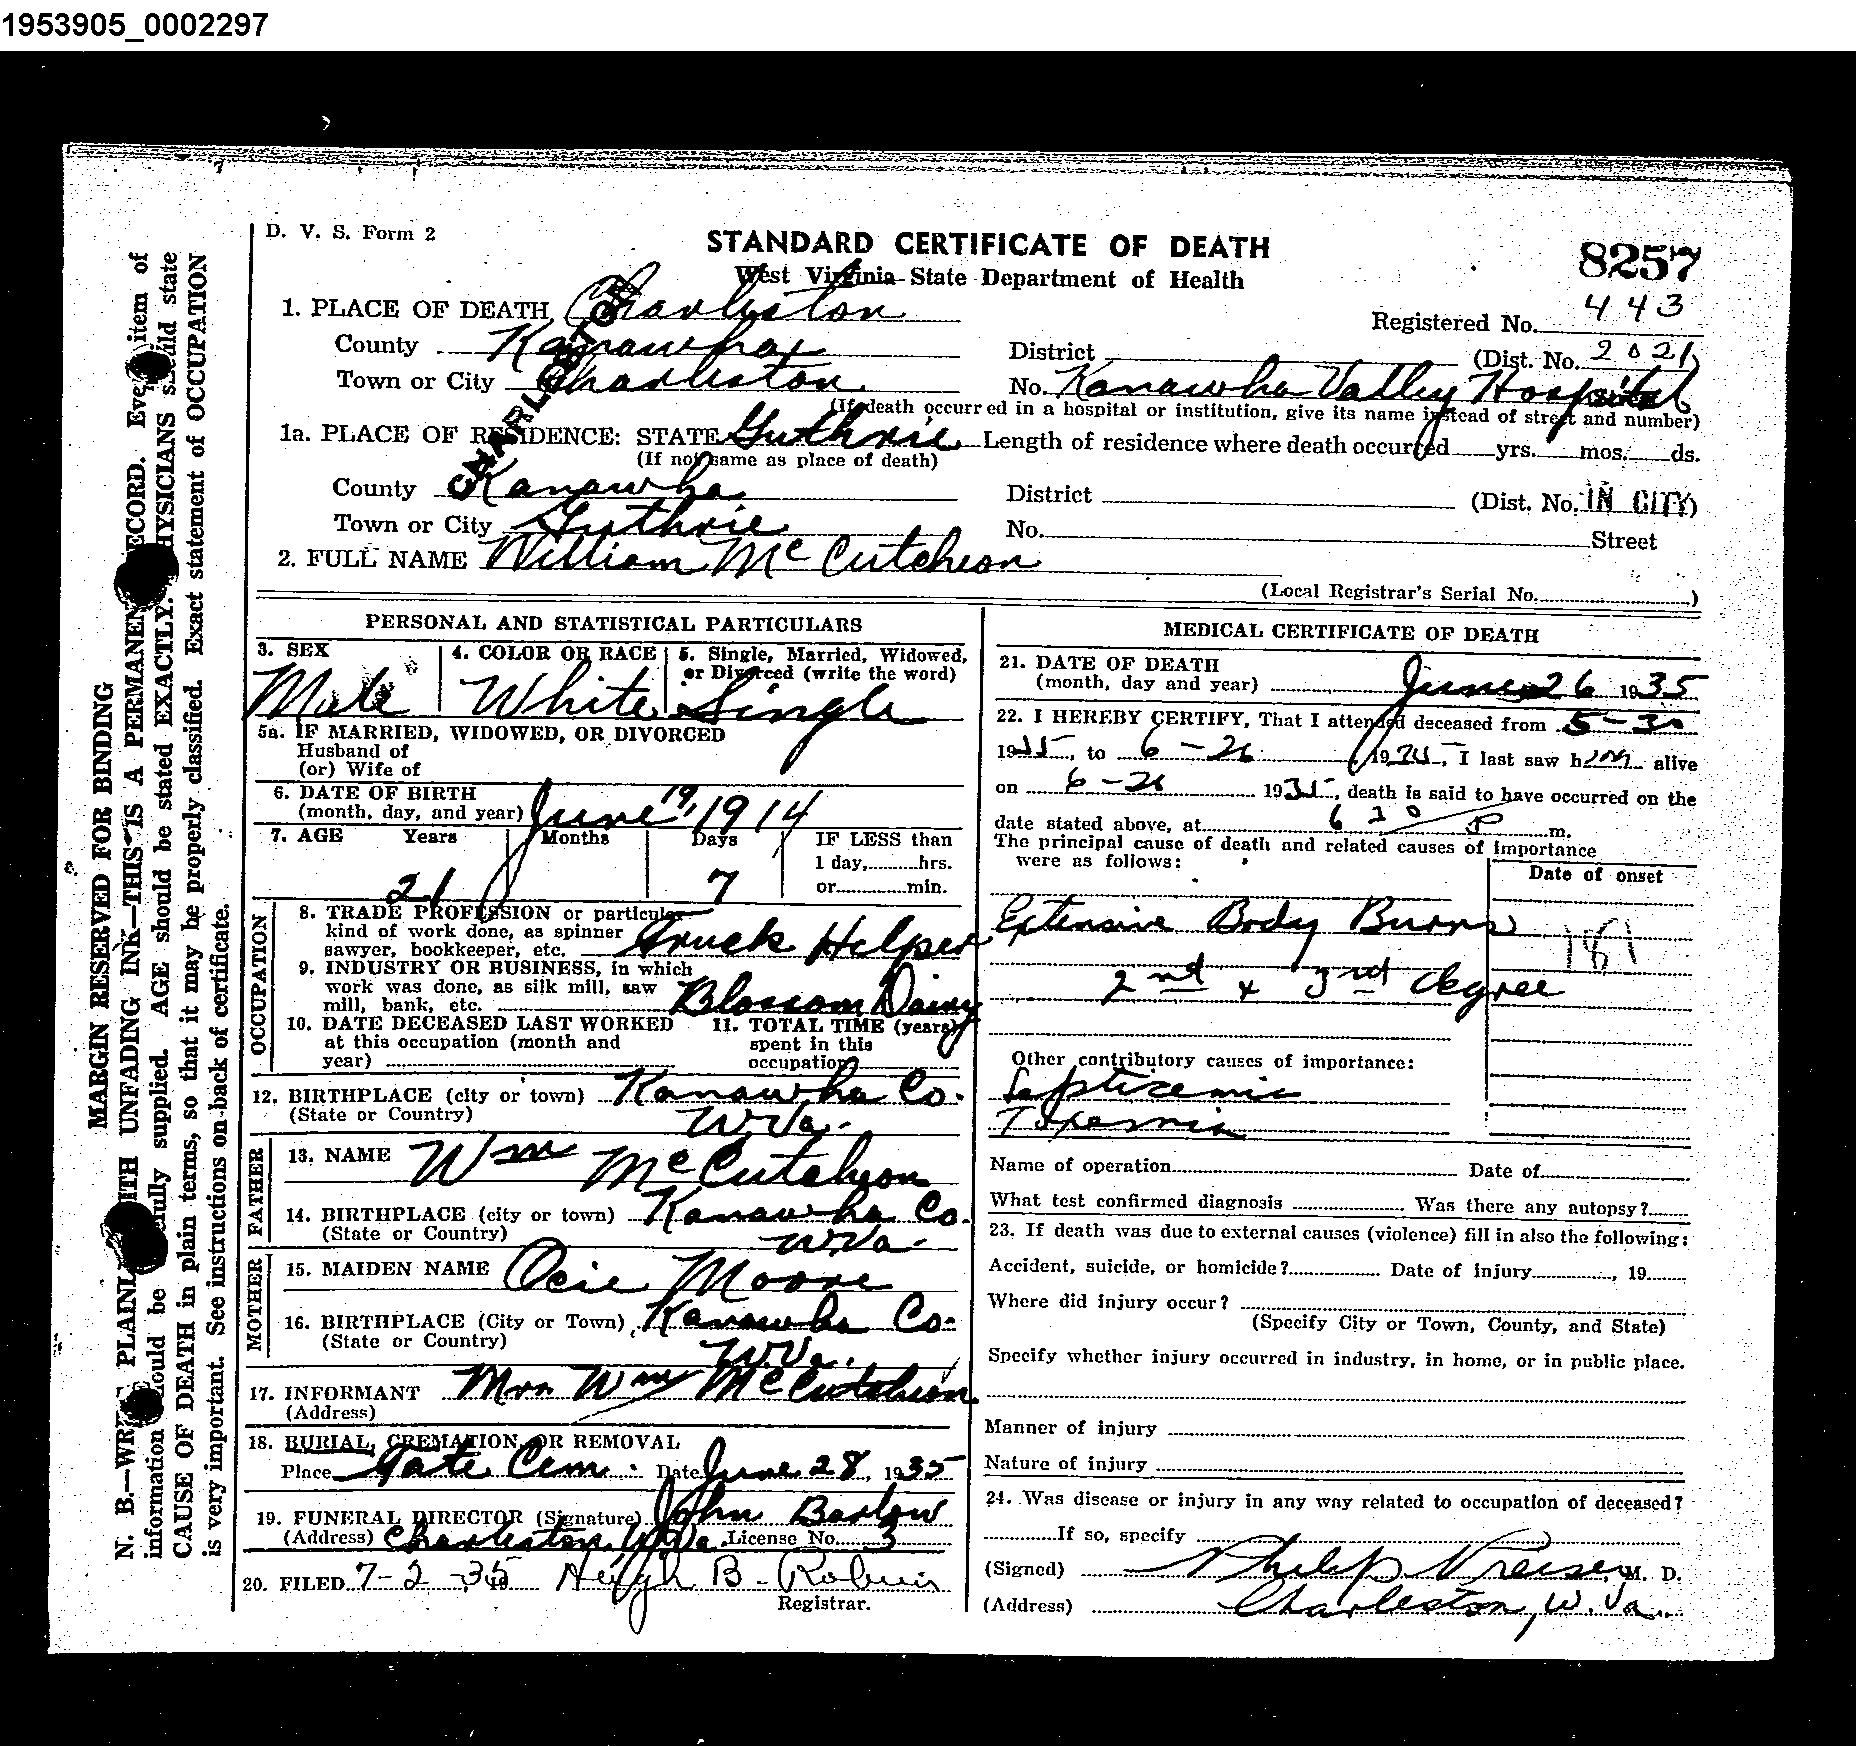 1953905_0002297
D. V. S. Form 2
STANDARD CERTIFICATE OF DEATH
West Virginia State Department of Health
8257
1. PLACE OF DEATH Charleston
Registered No. 443
County Kanawha
District (Dist. No. 2021)
Town or City Charleston
No. Kanawha Valley Hospital
(If death occurred in a hospital or institution, give its name instead of street and number)
CHARLESTON
1a. PLACE OF RESIDENCE: STATE Guthrie Length of residence where death occurred yrs. mos. ds.
(If not same as place of death)
County Kanawha
District (Dist. No. IN CITY)
Town or City Guthrie
No. Street
2. FULL NAME William McCutcheon
(Local Registrar's Serial No. )
PERSONAL AND STATISTICAL PARTICULARS
3. SEX
Male
4. COLOR OR RACE
White
5. Single, Married, Widowed,
or Divorced (write the word)
Single
5a. IF MARRIED, WIDOWED, OR DIVORCED
Husband of
(or) Wife of
6. DATE OF BIRTH
(month, day, and year) June 19, 1914
7. AGE Years Months Days IF LESS than
1 day, hrs.
or min.
21 7
OCCUPATION
8. TRADE PROFESSION or particular
kind of work done, as spinner
sawyer, bookkeeper, etc. Truck Helper
9. INDUSTRY OR BUSINESS, in which
work was done, as silk mill, saw
mill, bank, etc. Blossom Dairy
10. DATE DECEASED LAST WORKED
at this occupation (month and
year)
11. TOTAL TIME (years)
spent in this
occupation
12. BIRTHPLACE (city or town) Kanawha Co.
(State or Country) W.Va.
FATHER
13. NAME Wm McCutcheon
14. BIRTHPLACE (city or town) Kanawha Co.
(State or Country) W.Va.
MOTHER
15. MAIDEN NAME Ocie Moore
16. BIRTHPLACE (City or Town) Kanawha Co.
(State or Country) W.Va.
17. INFORMANT Mrs Wm McCutcheon
(Address)
18. BURIAL, CREMATION, OR REMOVAL
Place Tate Cem. Date June 28, 1935
19. FUNERAL DIRECTOR (Signature) John Barlow
(Address) Charleston, W.Va. License No. 3
20. FILED 7-2-35 Hugh B. Robins
Registrar.
MEDICAL CERTIFICATE OF DEATH
21. DATE OF DEATH
(month, day and year) June 26 1935
22. I HEREBY CERTIFY, That I attended deceased from 5-30
1935, to 6-26 1935, I last saw him alive
on 6-26 1935, death is said to have occurred on the
date stated above, at 6 30 P m.
The principal cause of death and related causes of importance
were as follows:
Date of onset
Extensive Body Burns
181
2nd & 3rd degree
Other contributory causes of importance:
Septicemia
Toxemia
Name of operation Date of
What test confirmed diagnosis Was there any autopsy?
23. If death was due to external causes (violence) fill in also the following:
Accident, suicide, or homicide? Date of injury , 19
Where did injury occur?
(Specify City or Town, County, and State)
Specify whether injury occurred in industry, in home, or in public place.
Manner of injury
Nature of injury
24. Was disease or injury in any way related to occupation of deceased?
If so, specify
(Signed) Philip Preiser, M. D.
(Address) Charleston, W. Va.
MARGIN RESERVED FOR BINDING
N. B.—WRITE PLAINLY WITH UNFADING INK—THIS IS A PERMANENT RECORD. Every item of
information should be carefully supplied. AGE should be stated EXACTLY. PHYSICIANS should state
CAUSE OF DEATH in plain terms, so that it may be properly classified. Exact statement of OCCUPATION
is very important. See instructions on back of certificate.